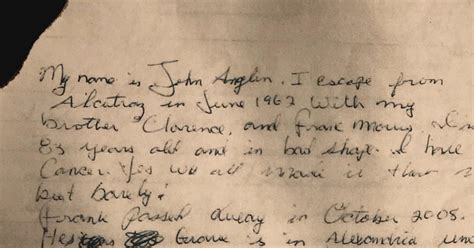 My name is John Anglin. I escape from
Alcatraz in June 1962 with my
brother Clarence, and Frank Morris. I'm
83 years old and in bad shape. I have
Cancer. Yes we all made it that
but barely!
Frank passed away in October 2008.
His grave is in Alexandria